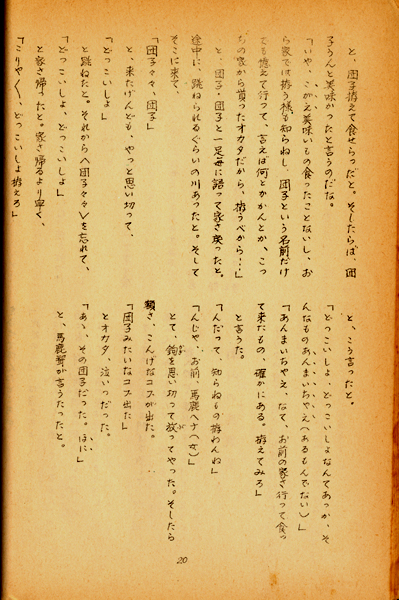 と、団子拵えて食せらったど。そしたらば、団
子うんと美味かったと言うのだな。
「いや、こがえ美味いもの食ったことないし、お
ら家では拵う様も知らねし、団子という名前だけ
ても聴えて行って、言えば何とかかんとか、こっ
ちの家から貰ったオカタだから、拵うべから…」
と、団子・団子と一足毎に語って家さ戻ったと。
途中に、跳ねられるぐらいの川あったと。そして
そこに来て、
「団子々々、団子」
と、来たけんども、やっと思い切って、
「どっこいしょ」
と跳ねたと。それからヘ団子々々Vを忘れて、
「どっこいしょ、どっこいしょ」
と家さ帰ったと。家さ帰るより早く、
「こりゃく、どっこいしょ拵えろ」
と、こう言ったと。
「どっこいしょ、どっこいしょなんてあっか、そ
んなものあんまいちゃえ（あるもんでない）」
「あんまいちゃえ、なて、お前の家さ行って食っ
て来たもの、確かにある。拵えてみろ」
と言うた。
「んだって、知らねもの拵わんね」
「んじゃ、お前、馬鹿ヘナ（女）」
とて、鉤を思い切って放ってやった。そしたら
額さ、こんげなコブが出た。
「団子みたいなコブ出た」
とオカタ、泣いつだった。
「あゝ、その団子だった。ほに」
と、馬鹿聟が言うたったと。
20